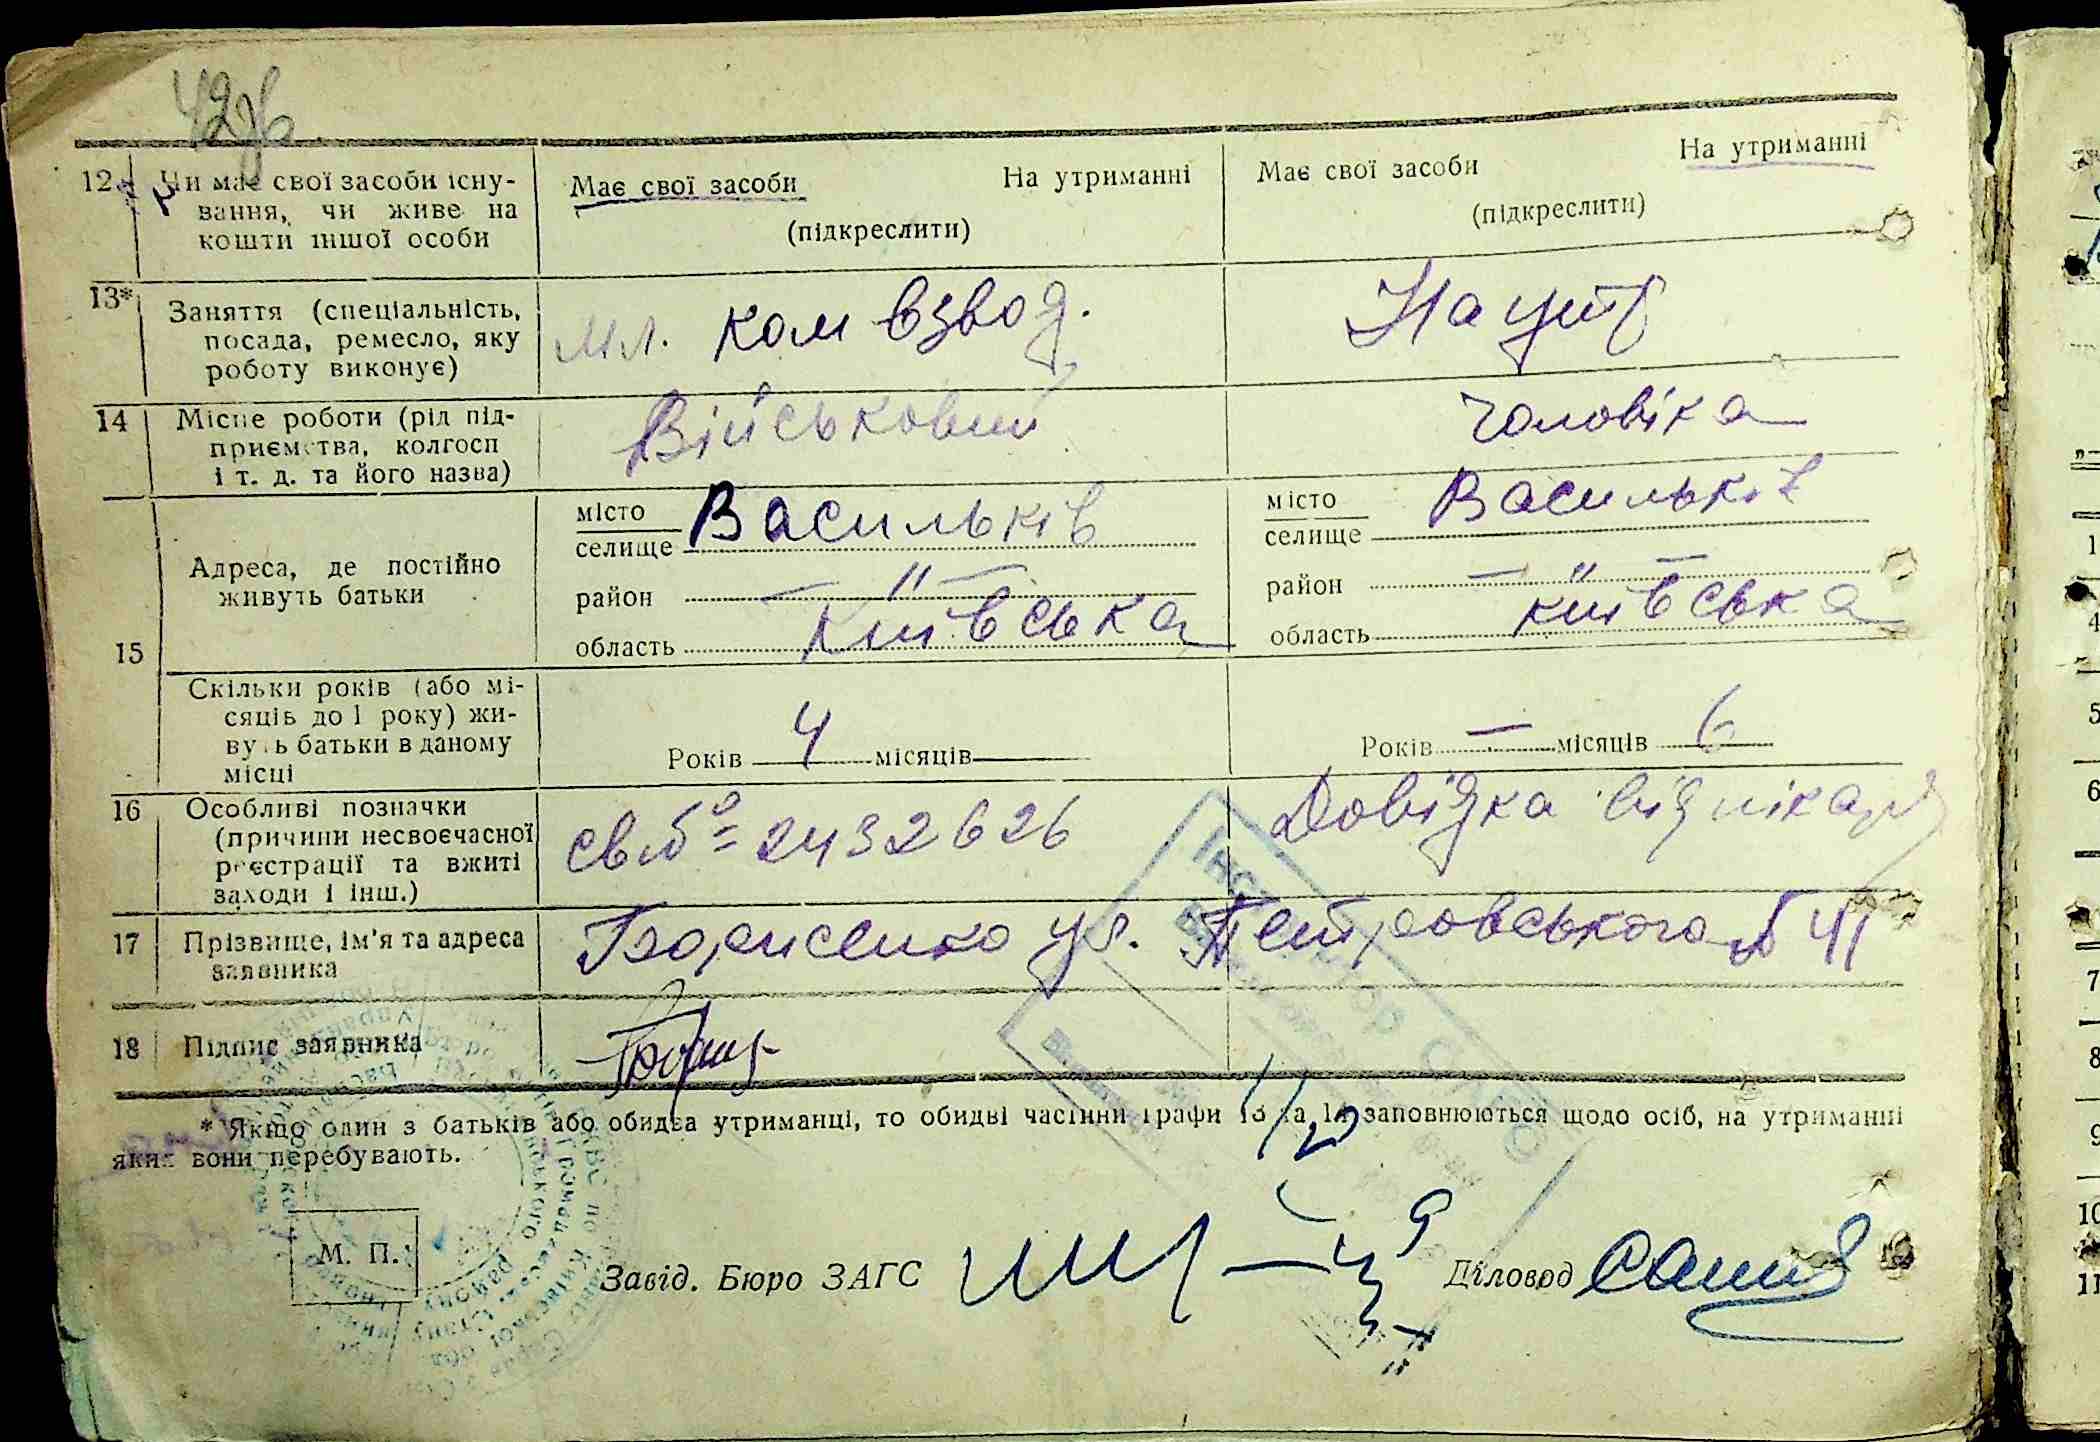 42зв
12 Чи має свої засоби існу- Має свої засоби На утриманні Має свої засоби На утриманні
вання, чи живе на (підкреслити) (підкреслити)
кошти іншої особи
13* Заняття (спеціальність, мл. ком взвод. На утр
посада, ремесло, яку
роботу виконує)
14 Місце роботи (рід під- Військовий чоловіка
приємства, колгосп
і т. д. та його назва)
15 Адреса, де постійно місто Васильків місто Васильків
живуть батьки селище селище
район — " — район — " —
область Київська область Київська
Скільки років (або мі- Років 4 місяців Років — місяців 6
сяців до 1 року) жи-
вуть батьки в даному
місці
16 Особливі позначки св № 2432626 Довідка від лікаря
(причини несвоєчасної
реєстрації та вжиті
заходи і інш.)
17 Прізвище, ім'я та адреса Борисенко ул. Петровського № 41
заявника
18 Підпис заявника
* Якщо один з батьків або обидва утриманці, то обидві частини графи 13 та 14 заповнюються щодо осіб, на утриманні
яких вони перебувають.
М. П.
Завід. Бюро ЗАГС Діловод